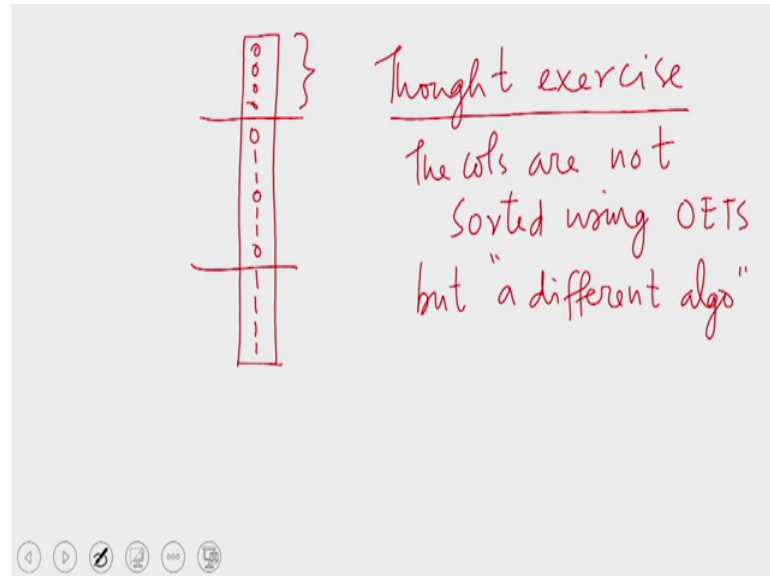 0
0
0
0
0
1
1
0
1
1
0
1
1
1
1
Thought exercise
The cols are not
sorted using OETS
but "a different algo"